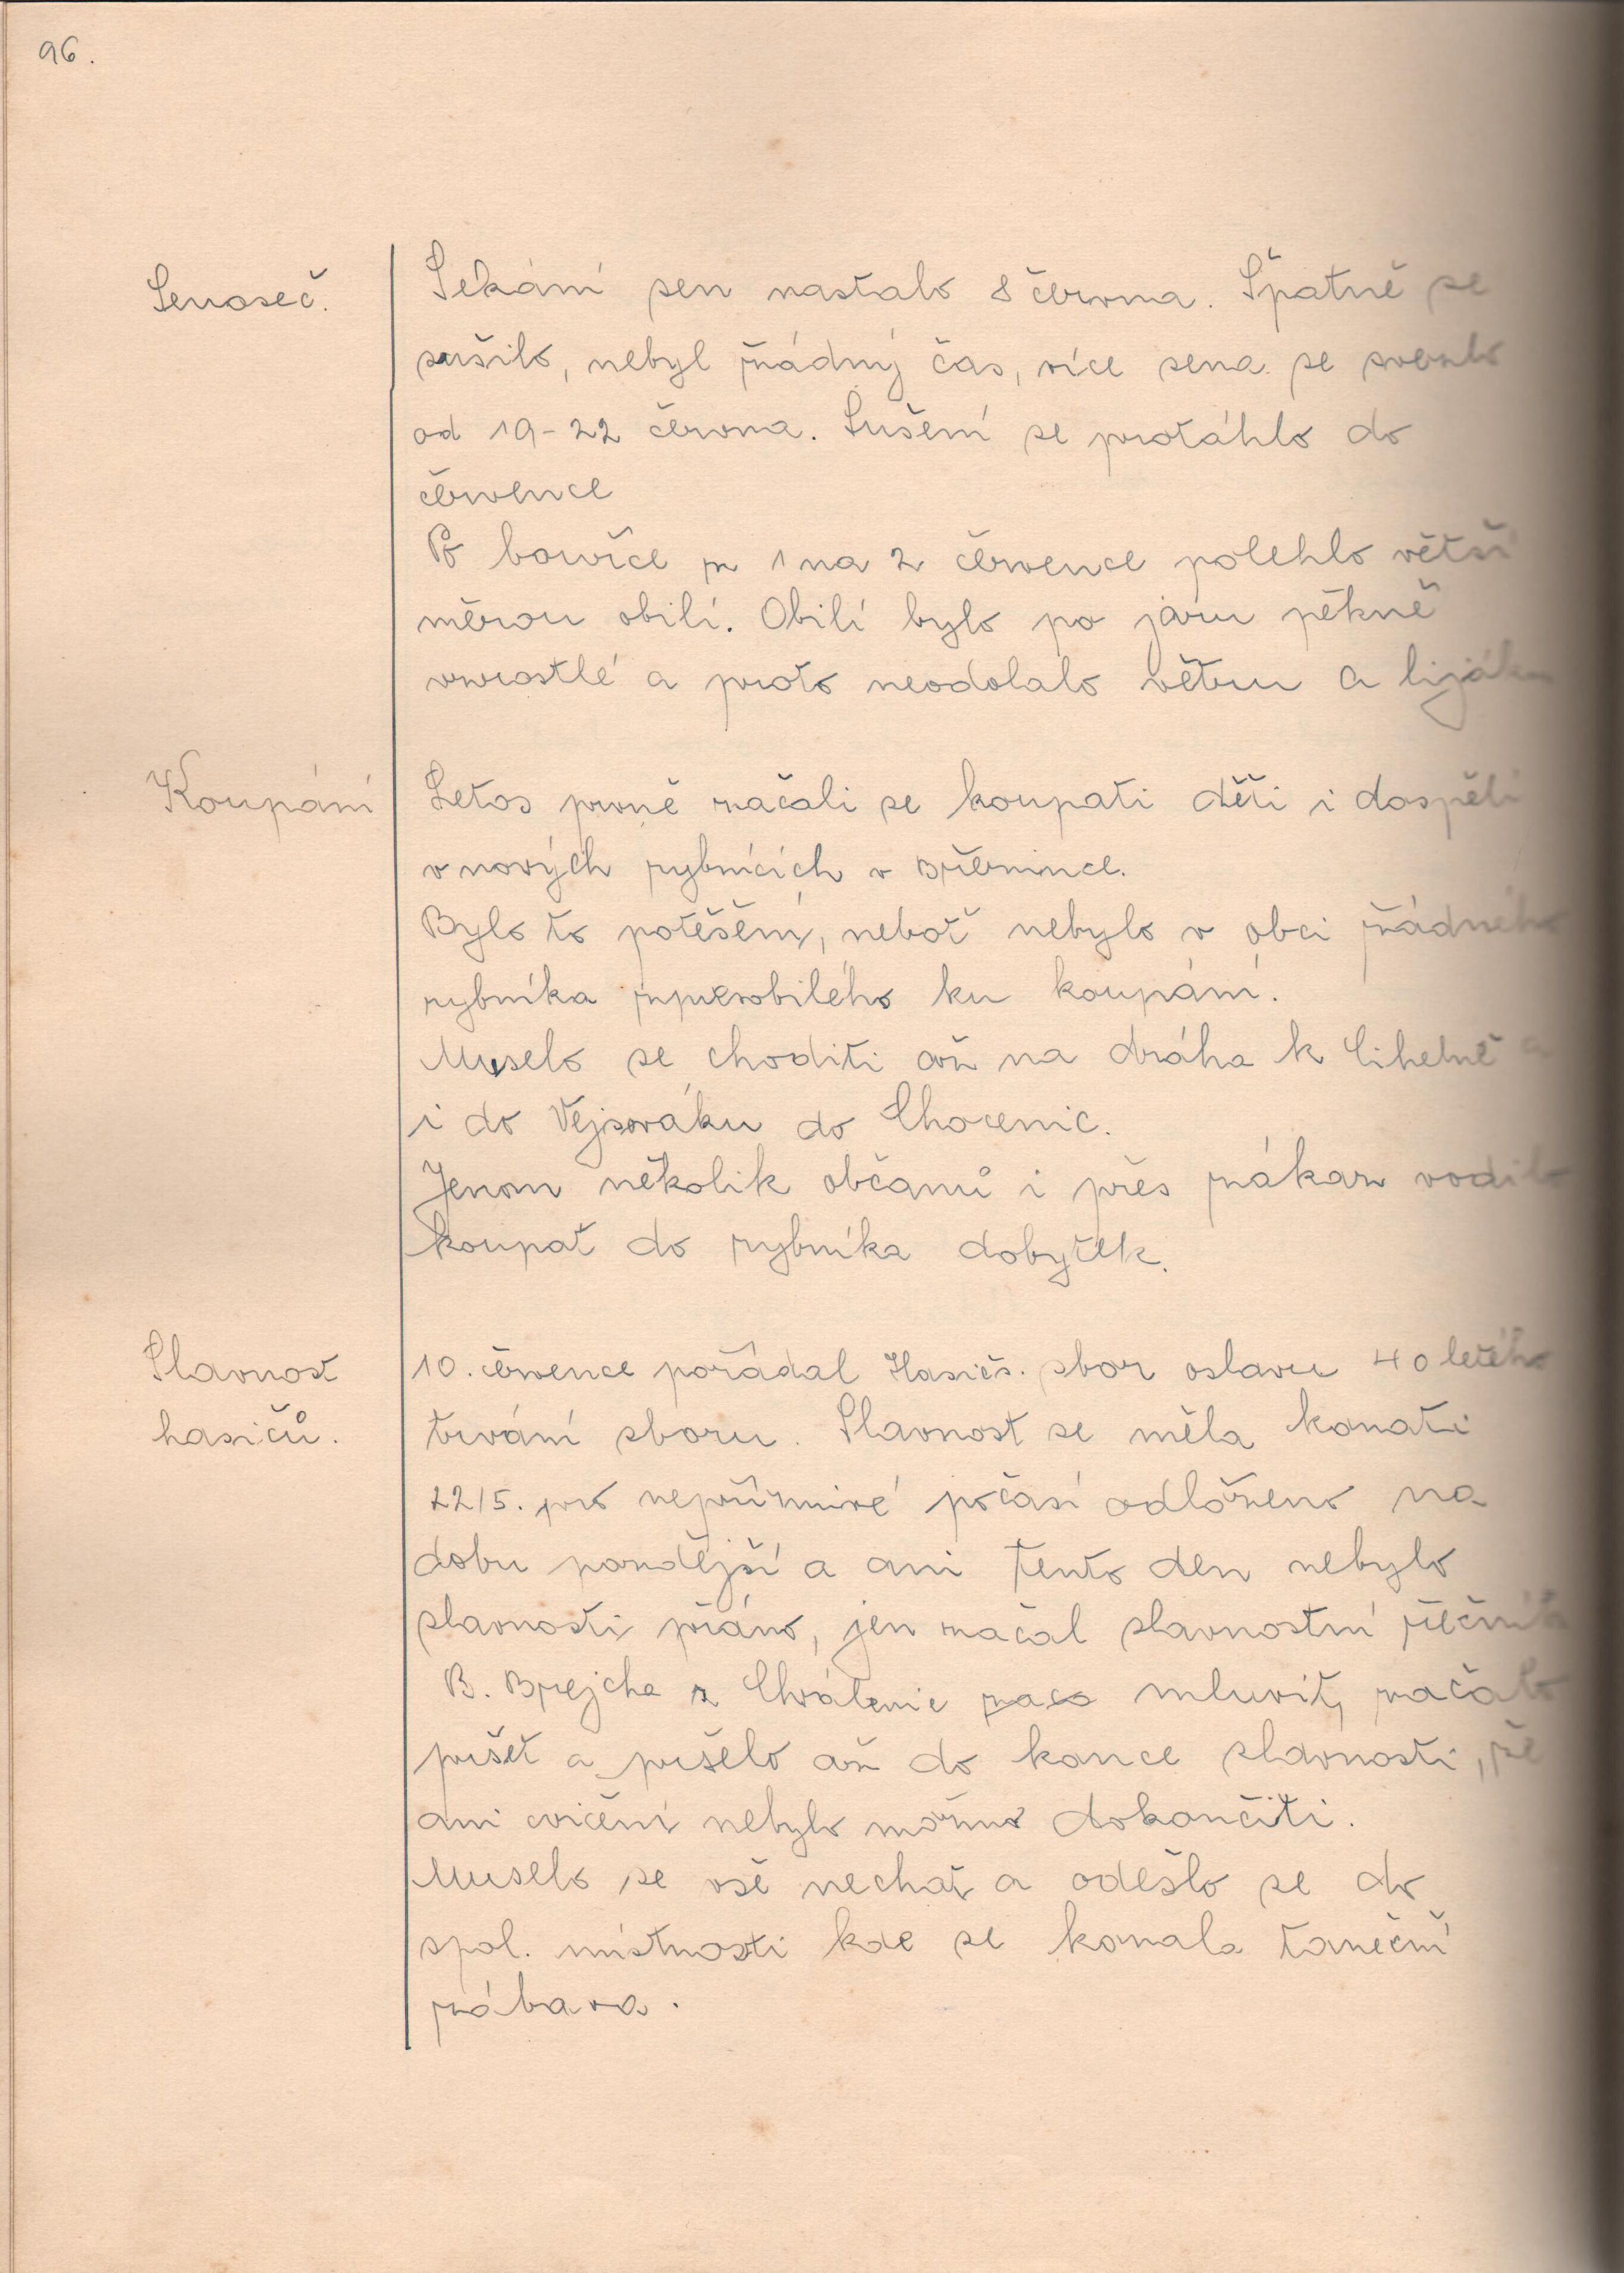 96.
Senoseč.
Sekání sen nastalo 8 června. Špatně se
sušilo, nebyl žádný čas, více sena se svezlo
od 19-22 června. Sušení se protáhlo do
července
Po bouřce z 1 na 2 července polehlo větší
měrou obilí. Obilí bylo po jaru pěkně
vzrostlé a proto neodolalo větru a lijáku
Koupání
Letos prvně začali se koupati děti i dospělí
v nových rybnících v Březince.
Bylo to potěšení, neboť nebylo v obci žádného
rybníka způsobilého ku koupání.
Muselo se choditi až na dráha k Cihelně a
i do Vejsováku do Chocenic.
Jenom několik občanů i přes zákaz vodilo
koupat do rybníka dobytek.
Slavnost
hasičů.
10. července pořádal Hasičs. sbor oslavu 40 letého
trvání sboru. Slavnost se měla konati
22/5. pro nepříznivé počasí odloženo na
dobu pozdější a ani tento den nebylo
slavnosti přáno, jen začal slavnostní řečník
B. Brejcha z Chválenic mluvit, začalo
pršet a pršelo až do konce slavnosti, že
ani cvičení nebylo možno dokončiti.
Muselo se vše nechat a odešlo se do
spol. místnosti kde se konala taneční
zábava.